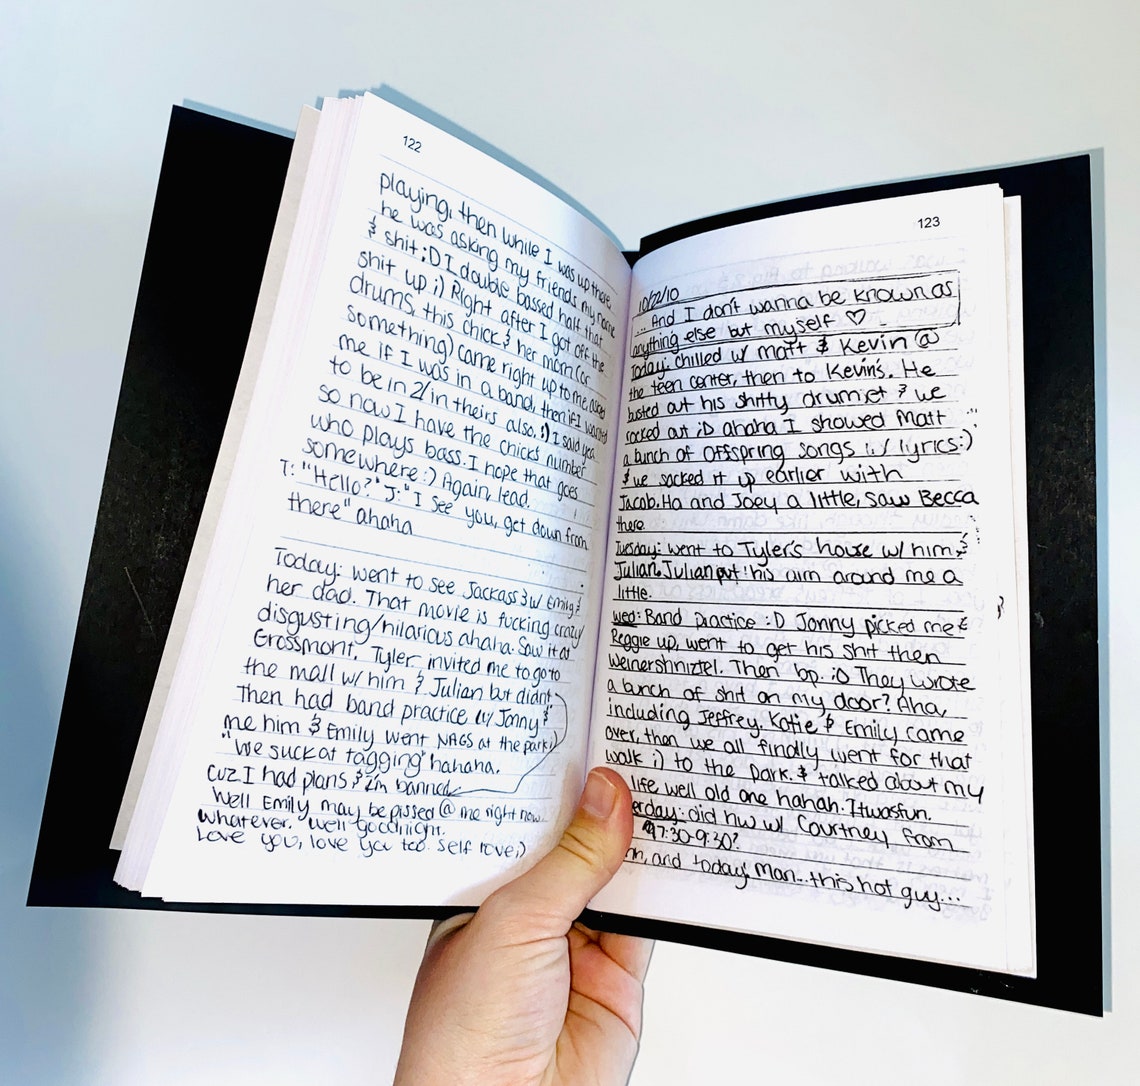 122
playing, then while I was up there
he was asking my friends my name
& shit :D I double bassed half that
shit up ;) Right after I got off the
drums, this chick & her mom (or
something) came right up to me, asked
me if I was in a band, then if I wanted
to be in 2/in theirs also. :) I said yea
so now I have the chick's number
who plays bass. I hope that goes
somewhere :) Again, lead.
T: "Hello?" "J: "I see you, get down from
there" ahaha
Today: went to see Jackass 3 w/ Emily &
her dad. That movie is fucking crazy/
disgusting/hilarious ahaha. Saw it at
Grossmont. Tyler invited me to go to
the mall w/ him & Julian but didnt
Then had band practice w/ Jonny &
me him & Emily went NAGS at the park ;)
"we suck at tagging" hahaha.
cuz I had plans & I'm banned
Well Emily may be pissed @ me right now
whatever. Well goodnight.
Love you, love you too. Self love ;)
123
10/22/10
... And I don't wanna be known as
anything else but myself ♡
Today: chilled w/ matt & Kevin @
the teen center, then to Kevin's. He
busted out his shitty drumset & we
rocked out :D ahaha I showed Matt
a bunch of Offspring songs w/ lyrics :)
& we sacked it up earlier with
Jacob. Ha and Joey a little, saw Becca
there.
Tuesday: went to Tyler's house w/ him &
Julian. Julian put his arm around me a
little.
Wed: Band practice :D Jonny picked me &
Reggie up, went to get his shit then
Weinershniztel. Then bp. :O They wrote
a bunch of shit on my door? Aha,
including Jeffrey. Katie & Emily came
over, then we all finally went for that
walk ;) to the park. & talked about my
life well old one hahah. It was fun.
erday: did hw w/ Courtney from
7:30-9:30?
, and today. Man... this hot guy...